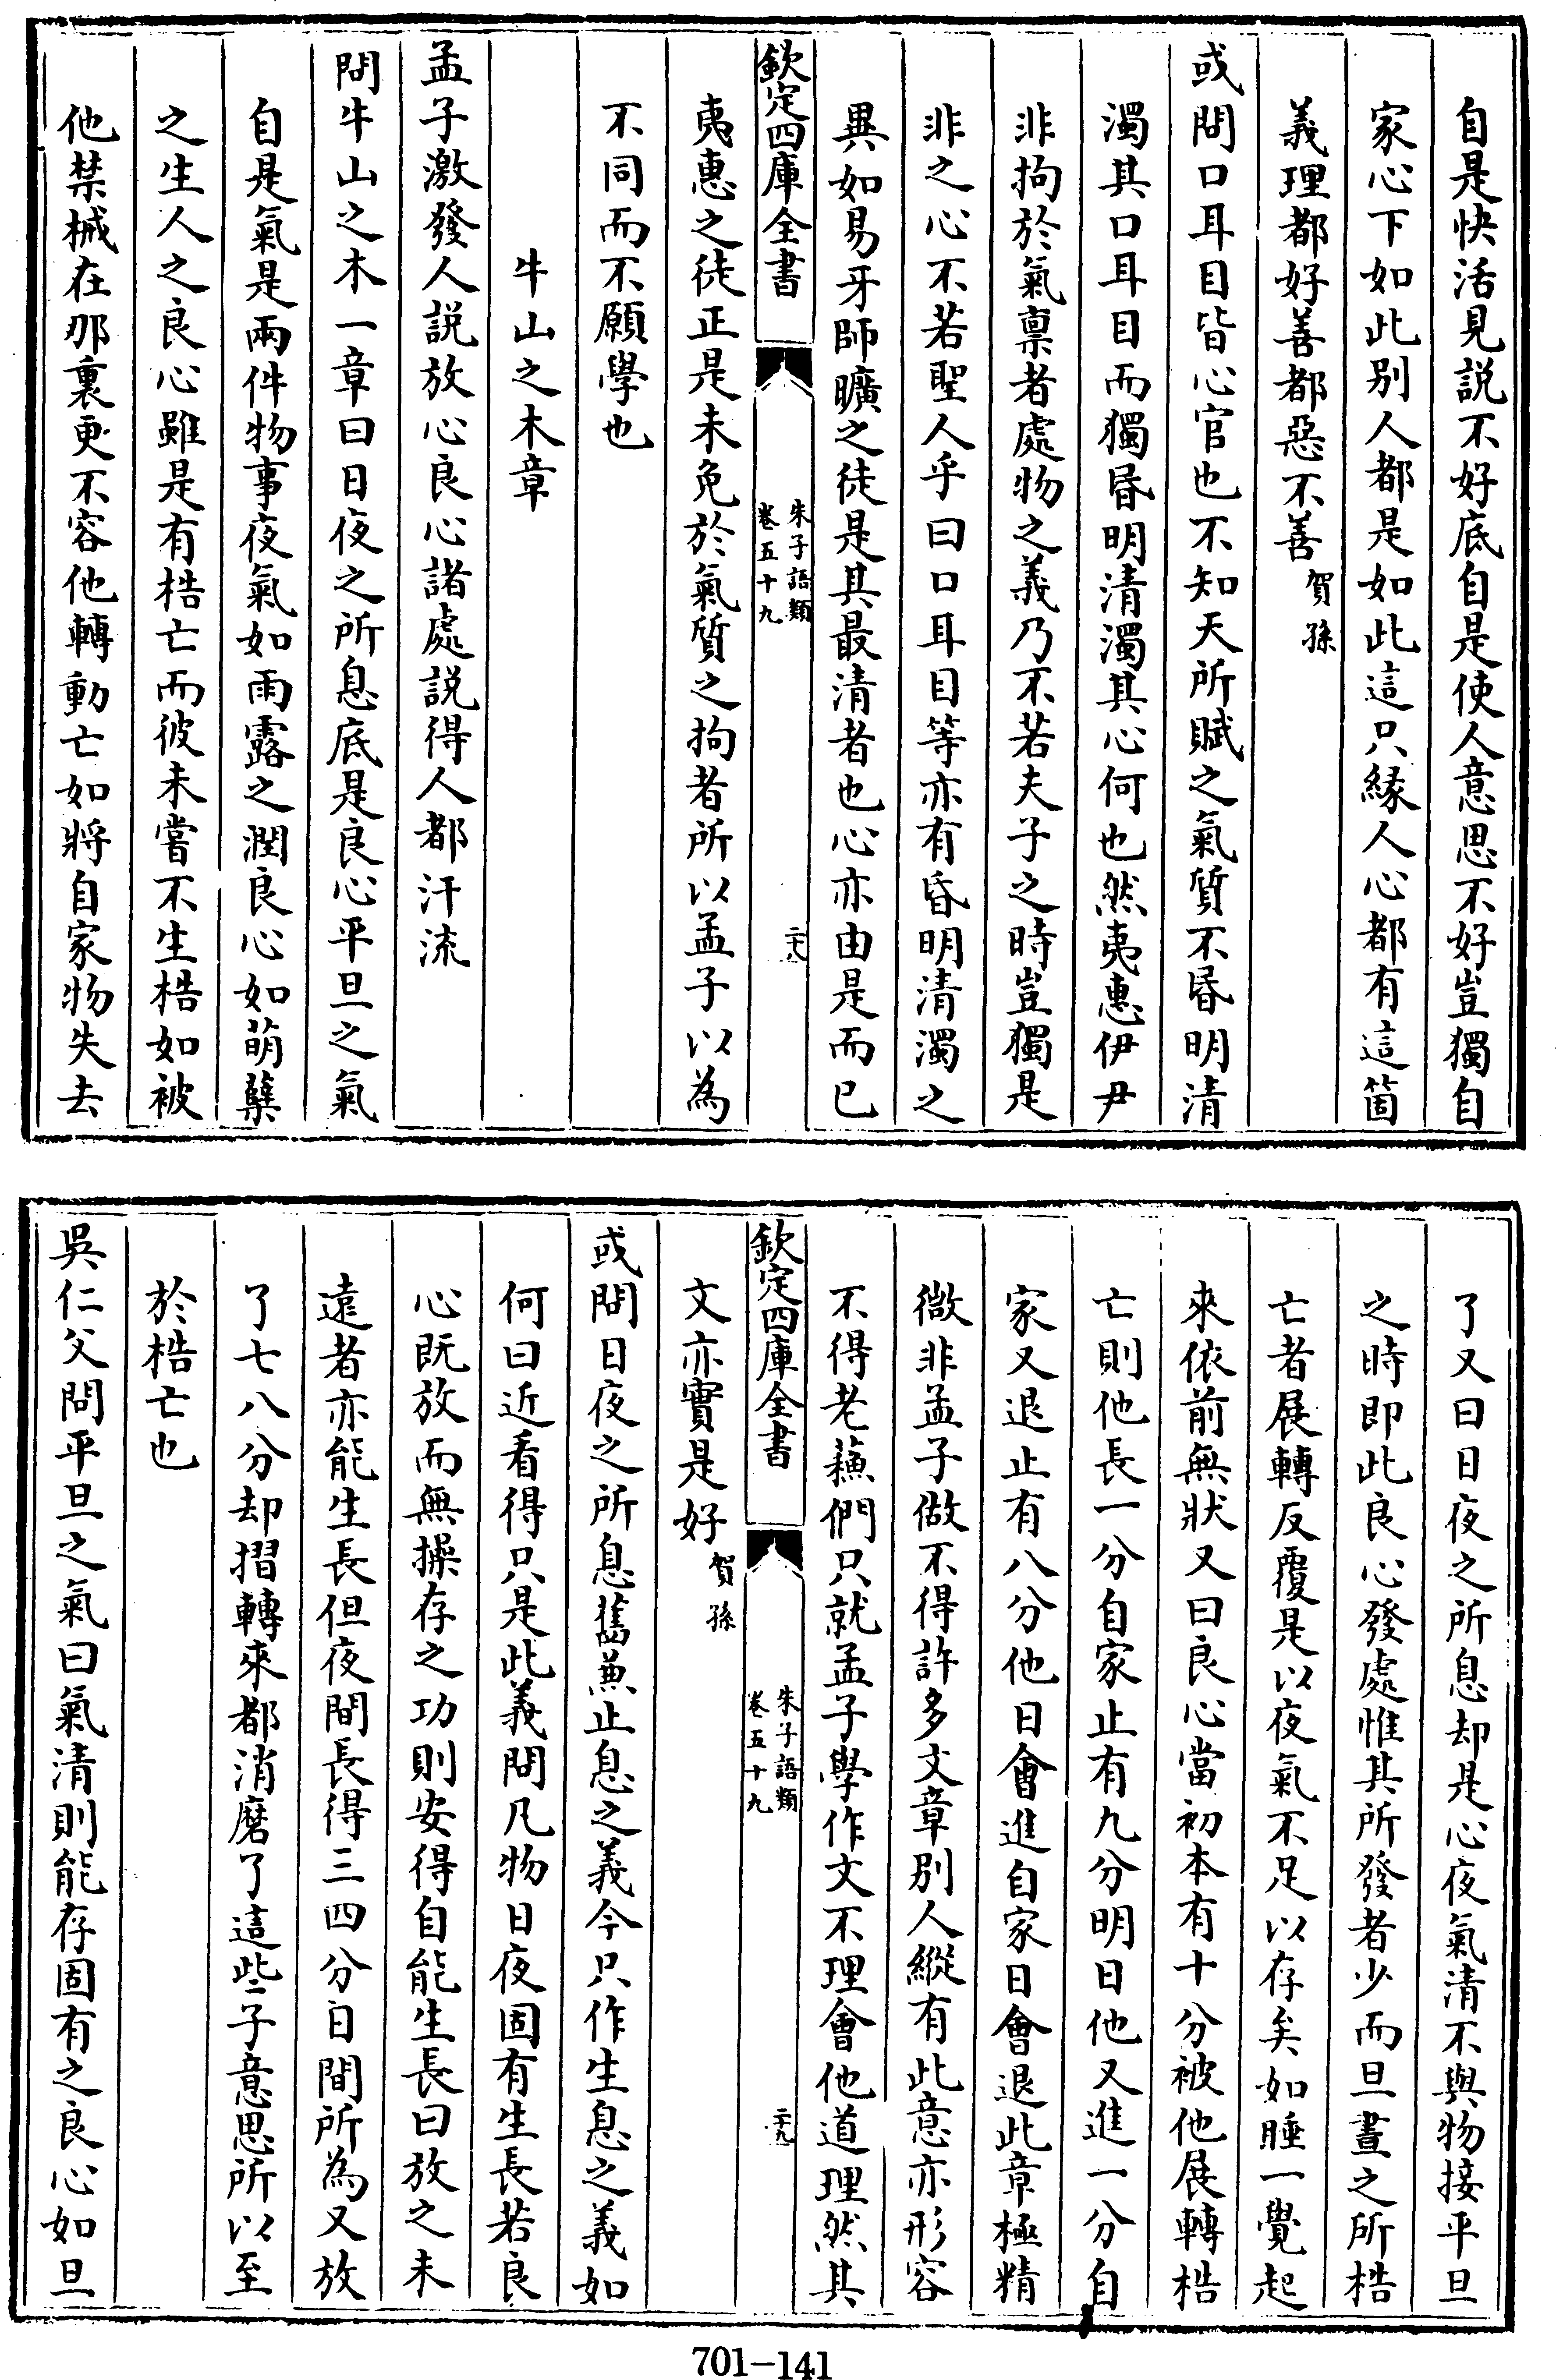 自是快活見説不好底自是使人意思不好豈獨自
家心下如此别人都是如此這只緣人心都有這箇
義理都好善都惡不善賀孫
或問口耳目皆心官也不知天所賦之氣質不昏明清
濁其口耳目而獨昏明清濁其心何也然夷惠伊尹
非拘於氣禀者處物之義乃不若夫子之時豈獨是
非之心不若聖人乎曰口耳目等亦有昏明清濁之
異如易牙師曠之徒是其最清者也心亦由是而已
欽定四庫全書
朱子語類
卷五十九
二十八
夷惠之徒正是未免於氣質之拘者所以孟子以為
不同而不願學也
牛山之木章
孟子激發人説放心良心諸處説得人都汗流
問牛山之木一章曰日夜之所息底是良心平旦之氣
自是氣是兩件物事夜氣如雨露之潤良心如萌蘖
之生人之良心雖是有梏亡而彼未嘗不生梏如被
他禁械在那裏更不容他轉動亡如將自家物失去
了又曰日夜之所息却是心夜氣清不與物接平旦
之時即此良心發處惟其所發者少而旦晝之所梏
亡者展轉反覆是以夜氣不足以存矣如睡一覺起
來依前無狀又曰良心當初本有十分被他展轉梏
亡則他長一分自家止有九分明日他又進一分自
家又退止有八分他日會進自家日會退此章極精
微非孟子做不得許多文章别人縱有此意亦形容
不得老蘇們只就孟子學作文不理會他道理然其
欽定四庫全書
朱子語類
卷五十九
二十九
文亦實是好賀孫
或問日夜之所息舊兼止息之義今只作生息之義如
何曰近看得只是此義問凡物日夜固有生長若良
心既放而無操存之功則安得自能生長曰放之未
遠者亦能生長但夜間長得三四分日間所為又放
了七八分却摺轉來都消磨了這些子意思所以至
於梏亡也
吳仁父問平旦之氣曰氣清則能存固有之良心如旦
701-141